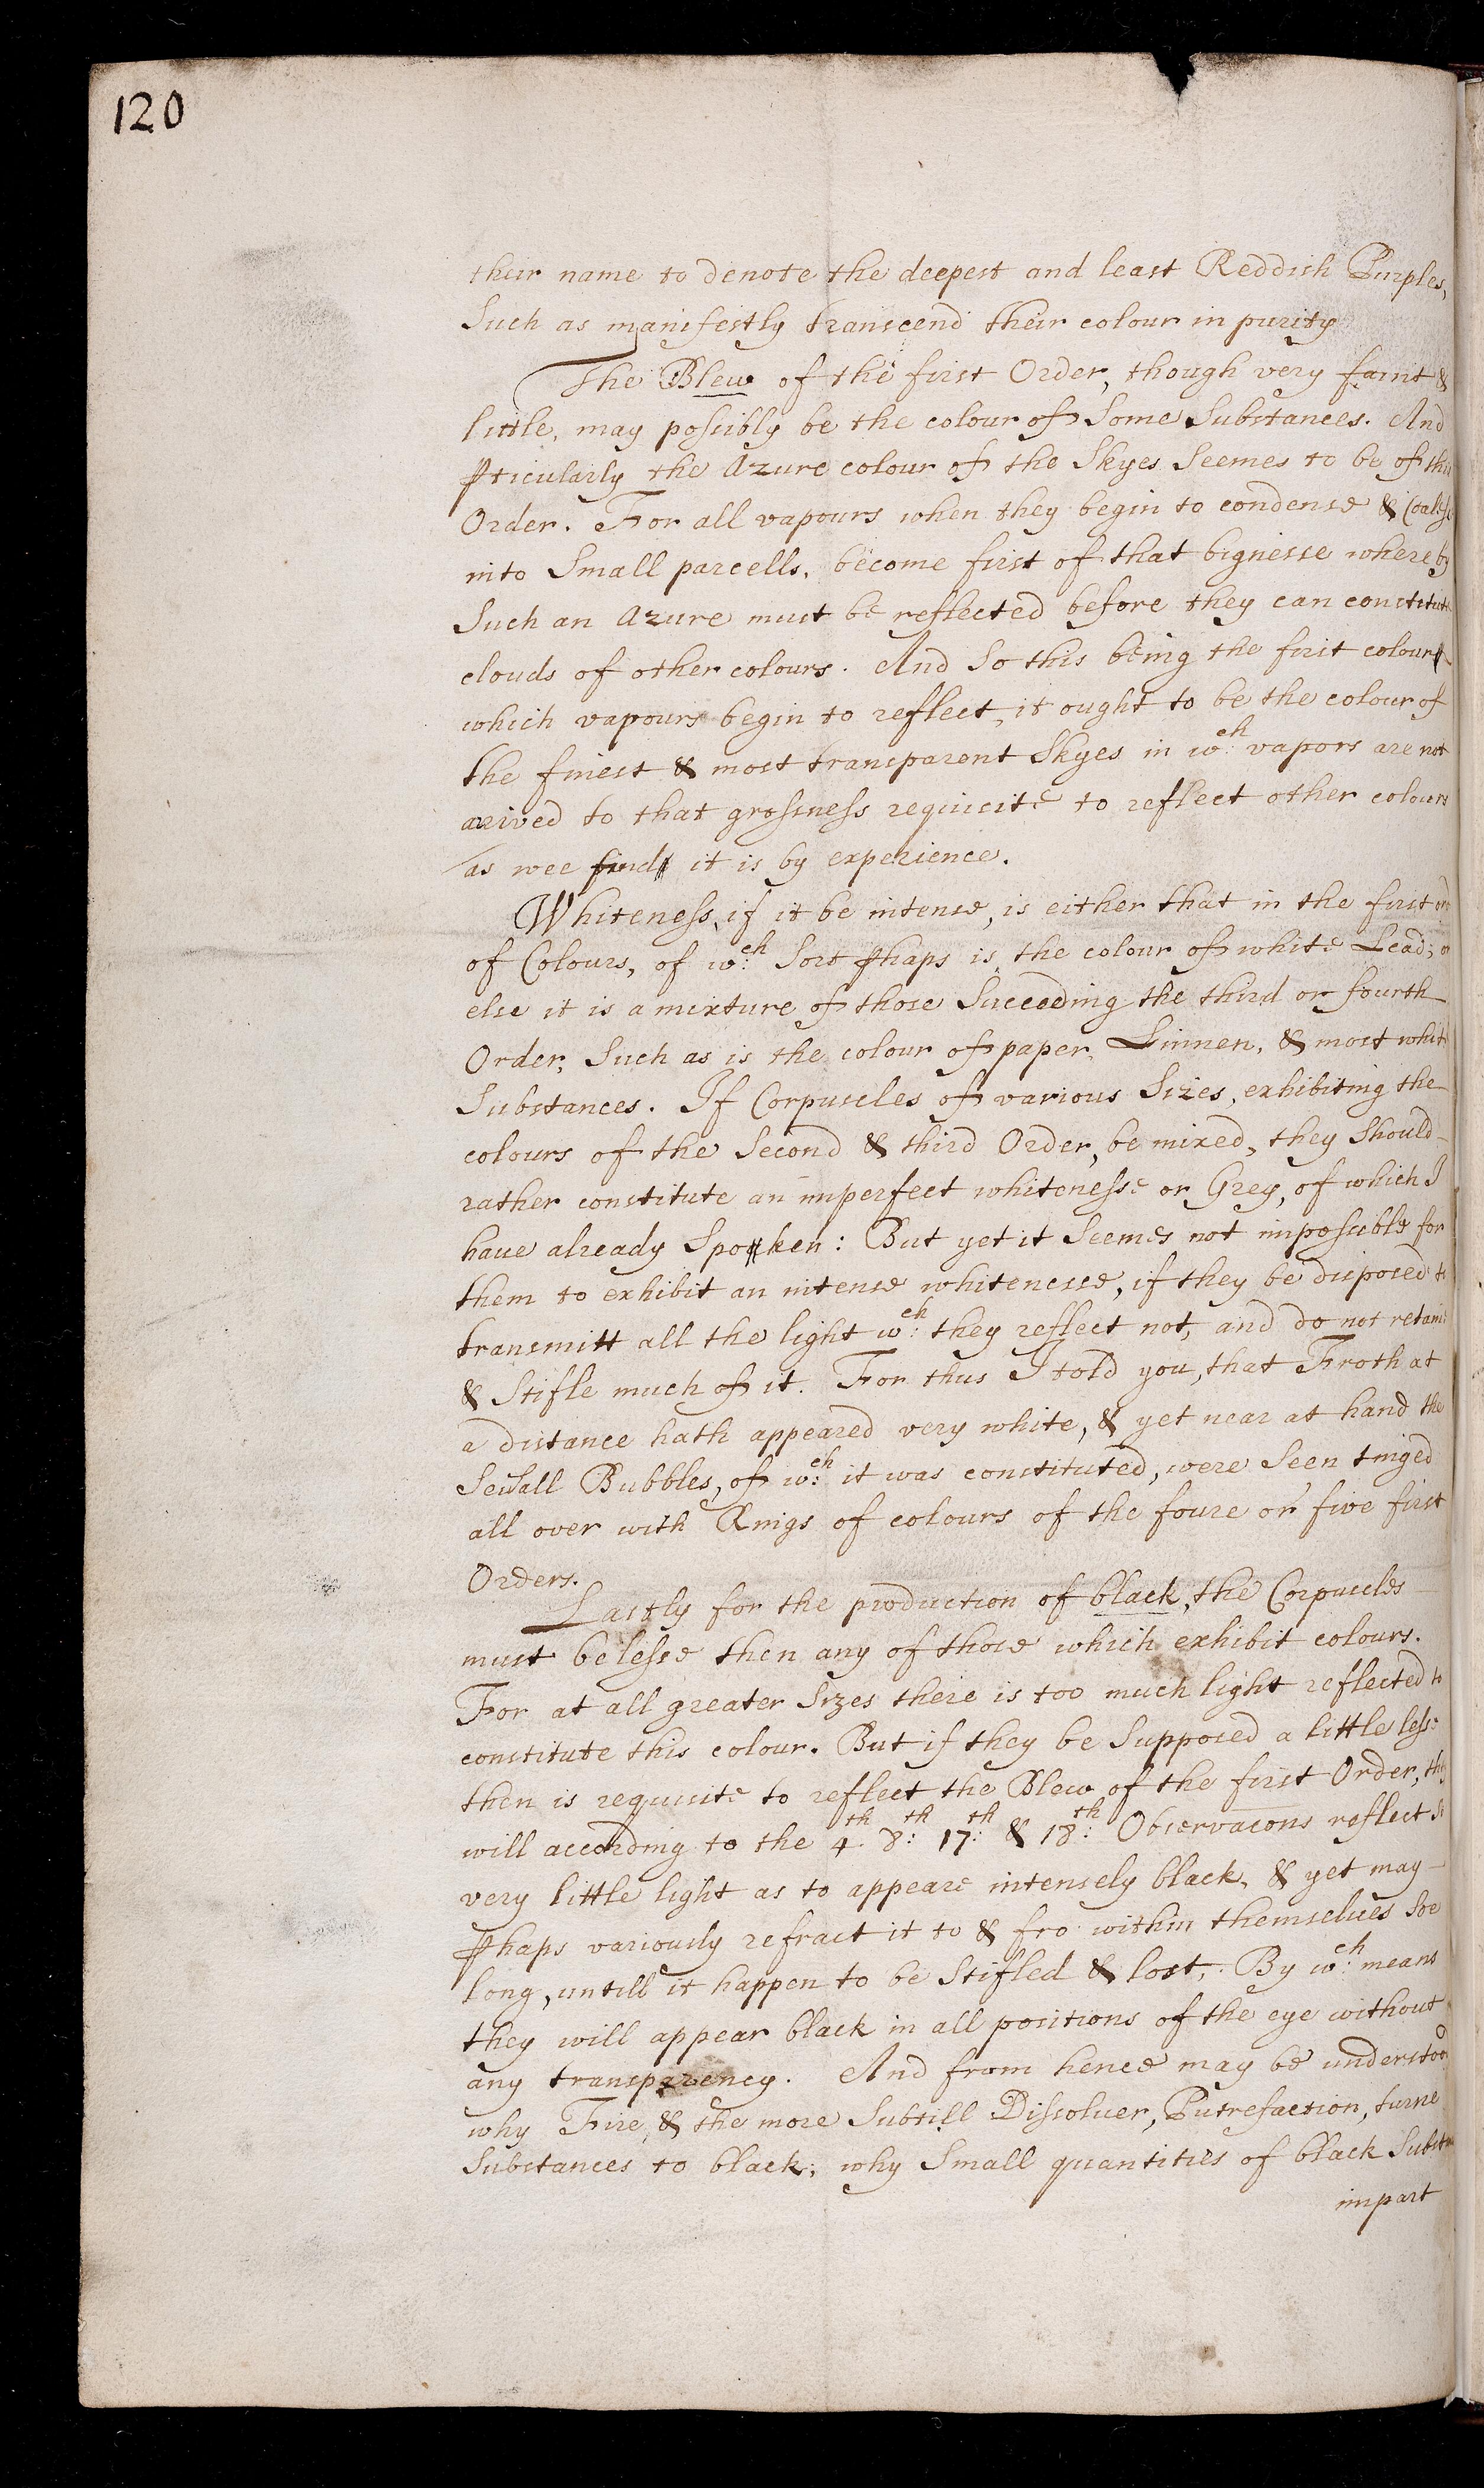 120
their name to denote the deepest and least Reddish Purples,
Such as manifestly transcend their colour in purity
The Blew of the first Order, though very faint &
little, may possibly be the colour of Some Substances. And
pticularly the Azure colour of the Skyes Seemes to be of this
Order. For all vapours when they begin to condense & Coalesce
into Small parcells, become first of that bignesse whereby
Such an Azure must be reflected before they can constitute
clouds of other colours. And So this being the first colour
which vapours begin to reflect, it ought to be the colour of
the finest & most transparent Skyes in wch: vapors are not
arived to that grossness requisite to reflect other colours
as wee find it is by experience.
Whiteness, if it be intense, is either that in the first ord
of Colours, of wch: Sort phaps is the colour of white Lead; or
else it is a mixture of those Succeeding the third or fourth
Order, Such as is the colour of paper, Linnen, & most white
Substances. If Corpuscles of various Sizes, exhibiting the
colours of the Second & third Order, be mixed, they Should
rather constitute an imperfect whitenesse or Grey, of which I
haue already Spoken: But yet it Seemes not impossible for
them to exhibit an intense whitenesse, if they be disposed to
transmitt all the light wch: they reflect not, and do not retaine
& Stifle much of it. For thus I told you, that Froth at
a distance hath appeared very white, & yet near at hand the
Seuall Bubbles, of wch: it was constituted, were Seen tinged
all over with Rings of colours of the foure or five first
Orders.
Lastly for the production of black, the Corpuscles
must be lesse then any of those which exhibit colours.
For at all greater Sizes there is too much light reflected to
constitute this colour. But if they be Supposed a little lesse
then is requisite to reflect the Blew of the first Order, they
will according to the 4th. 8th: 17th: & 18th: Observacons reflect so
very little light as to appeare intensely black, & yet may
phaps variously refract it to & fro within themselues Soe
long, untill it happen to be Stifled & lost, By wch: means
they will appear black in all positions of the eye without
any transparency. And from hence may be understood
why Fire, & the more Subtill Dissoluer, Putrefaction, turne
Substances to black; why Small quantities of black
impart